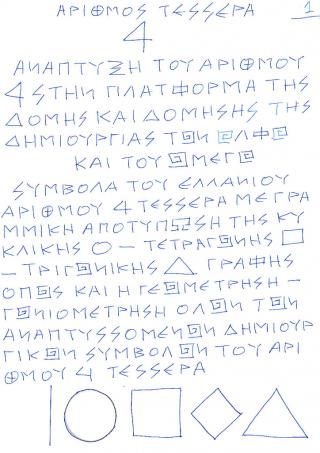 ΑΡΙΘΜΟΣ ΤΕΣΣΕΡΑ 1
4
ΑΝΑΠΤΥΞΗ ΤΟΥ ΑΡΙΘΜΟΥ
4 ΣΤΗΝ ΠΛΑΤΦΟΡΜΑ ΤΗΣ
ΔΟΜΗΣ ΚΑΙ ΔΟΜΗΣΗΣ ΤΗΣ
ΔΗΜΙΟΥΡΓΙΑΣ ΤΩΝ ΑΛΦΑ
ΚΑΙ ΤΟΥ ΩΜΕΓΑ
ΣΥΜΒΟΛΑ ΤΟΥ ΕΛΛΑΝΙΟΥ
ΑΡΙΘΜΟΥ 4 ΤΕΣΣΕΡΑ ΜΕ ΓΡΑ
ΜΜΙΚΗ ΑΠΟΤΥΠΩΣΗ ΤΗΣ ΚΥ
ΚΛΙΚΗΣ ○ – ΤΕΤΡΑΓΩΝΗΣ □
– ΤΡΙΓΩΝΙΚΗΣ △ ΓΡΑΦΗΣ
ΟΠΩΣ ΚΑΙ Η ΓΕΩΜΕΤΡΗΣΗ –
ΓΩΝΙΟΜΕΤΡΗΣΗ ΟΛΩΝ ΤΩΝ
ΑΝΑΠΤΥΣΣΟΜΕΝΩΝ ΔΗΜΙΟΥΡ
ΓΙΚΩΝ ΣΥΜΒΟΛΩΝ ΤΟΥ ΑΡΙ
ΘΜΟΥ 4 ΤΕΣΣΕΡΑ